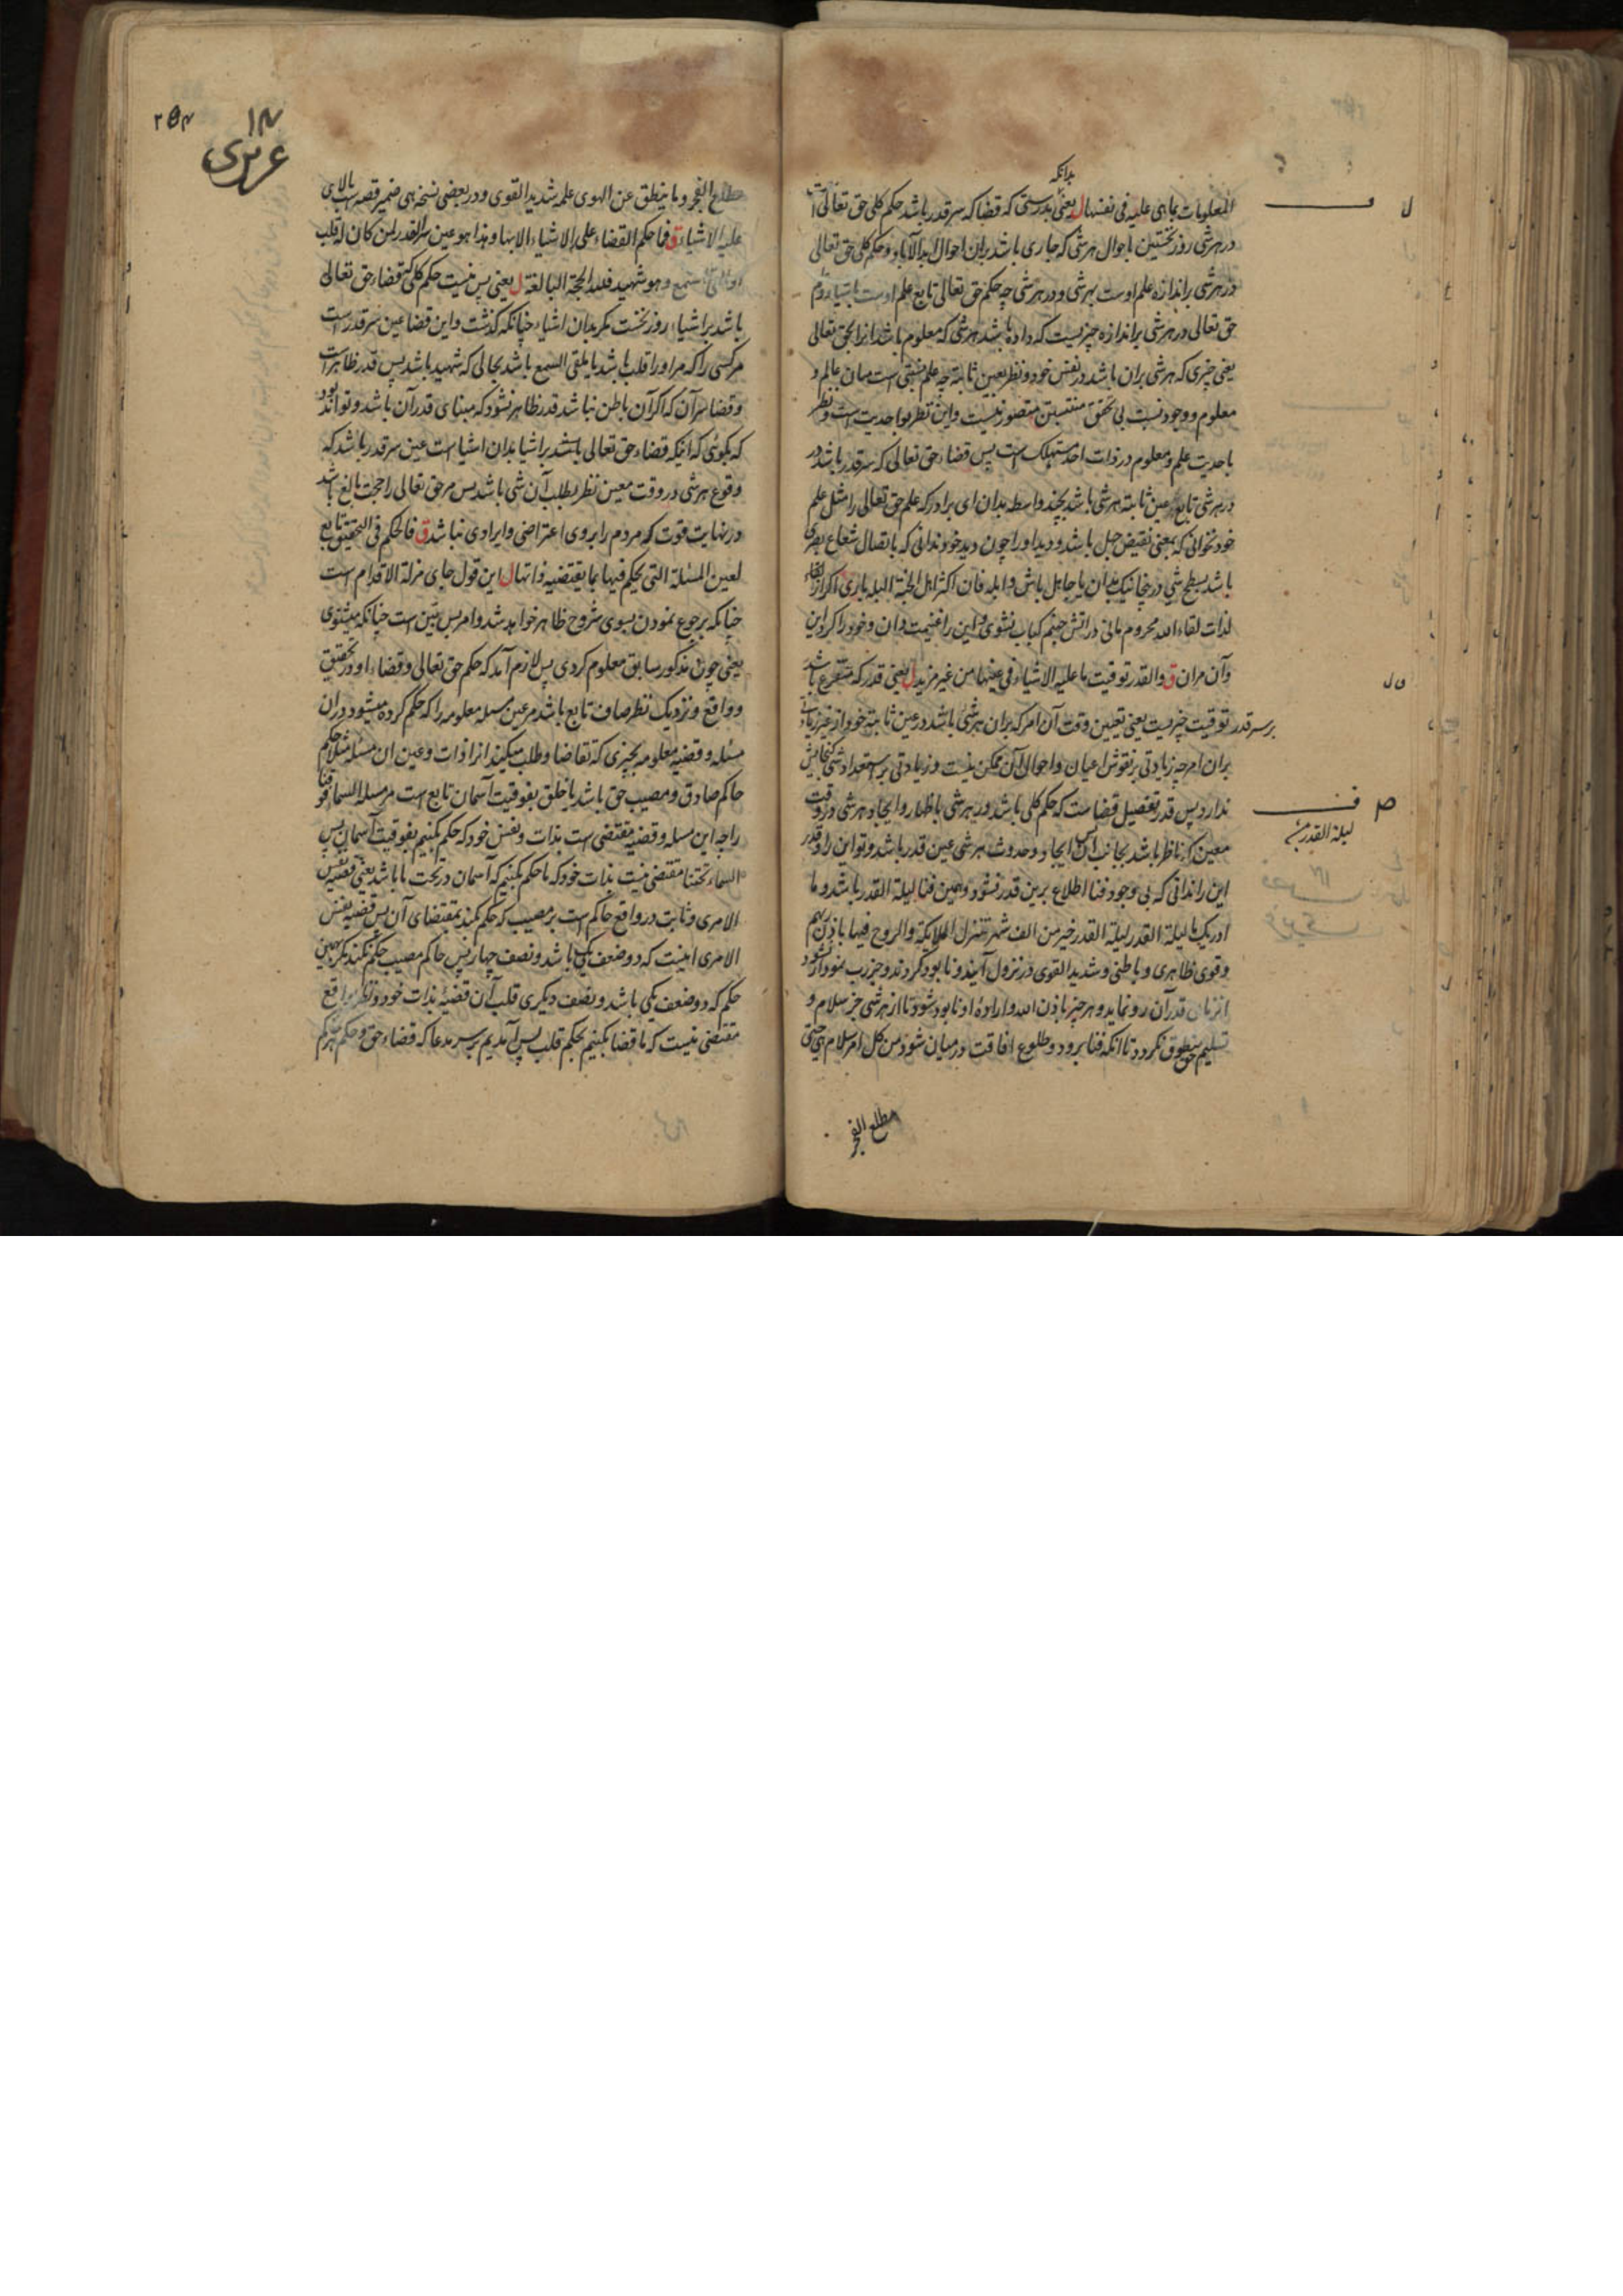 بدانکه
المعلومات بما هی علیه فی نفسها ل یعنی بدرستی که قضا که سر قدر باشد حکم کلی حق تعالی است
در هر شی روز نخستین باحوال هر شی که جاری باشد بران احوال ابد الآباد و حکم کلی حق تعالی
در هر شی بر اندازه علم اوست بهر شی و در هر شی چه حکم حق تعالی تابع علم اوست باشیا و
حق تعالی در هر شی بر اندازه چیزیست که داده باشد هر شی که معلوم باشد انرا بحق تعالی
یعنی چیزی که هر شی بران باشد در نفس خود و نظر بعین ثابته چه علم است میان عالم و
معلوم و وجود نسبت بی تحقق منتسبین متصور نیست و این نظر بواحدیت است و نظر
باحدیت علم و معلوم در ذات احد مستهلک است پس قضاء حق تعالی که سر قدر باشد در
در هر شی تابع عین ثابته هر شی باشد بچند واسطه بدان ای برادر که علم حق تعالی را مثل علم
خود نخوانی که بمعنی نقیض جهل باشد و دید او را چون دید خود ندانی که باتصال شعاع بصری
باشد بسطح شی درخیانیک بدان یا جاهل باش و ابله فان اکثر اهل الجنة البله باری اگر از لقاء
لذات لقاء الله محروم مانی در اتش جهنم کباب نشوی و این را غنیمت دان و خود را کرد این
و آن مران ق والقدر توقیت ما علیه الاشیاء فی عینها من غیر مزید ل یعنی قدر که متفرع باشد
بر سر قدر توقیت چیزیست یعنی تعیین وقت آن امر که بران هر شی باشد در عین ثابته خود از غیر زیادت
بران امر چه زیادتی بر نقوش اعیان و احوال آن ممکن نیست و زیادتی بر استعداد شی گنجایش
ندارد پس قدر تفصیل قضاست که حکم کلی باشد در هر شی باظهار و ایجاد هر شی در وقت
معین که ناظر باشد بجانب ایجاد و حدوث هر شی عین قدر باشد و تو این راو قدر
این را ندانی که بی وجود فنا اطلاع برین قدر نشود و همین فنا لیلة القدر باشد و ما
ادریک ما لیلة القدر لیلة القدر خیر من الف شهر تنزل الملایکة والروح فیها باذن ربهم
و قوی ظاهری و باطنی و شدید القوی در نزول آیند و نابود گردند و جز رب نمودار نشود
انزمان قدر آن رو نماید و هر چیز باذن الله و اراده او نابود شود تا از هر شی جز سلام و
تسلیم حق منطوق نگردد تا انکه فنا برود و طلوع افاقت در میان شود من کل امر سلام هی حتی
مطلع الفجر
ل
ل
ص
لیلة القدر
۲۵۴
۱۴
عزیری
مطلع الفجر و ما ینطق عن الهوی علمه شدید القوی و در بعضی نسخه هی ضمیر قصه است بالای
علیه الاشیاء ق فما حکم القضاء علی الاشیاء الا بها و هذا هو عین سر القدر لمن کان له قلب
او القی السمع و هو شهید فلله الحجة البالغة ل یعنی پس نیست حکم کلی که قضاء حق تعالی
باشد بر اشیاء روز نخست مگر بدان اشیاء چنانکه گذشت و این قضا عین سر قدر است
مر کسی را که مر او را قلب باشد یا ملقی السمع باشد بحالی که شهید باشد پس قدر ظاهر است
و قضا سر آن که اگر آن باطن نباشد قدر ظاهر نشود که مبنای قدر آن باشد و تواند بود
که بگوئی که انیکه قضاء حق تعالی باشد بر اشیا بدان اشیاست عین سر قدر باشد که
وقوع هر شی در وقت معین نظر بطلب آن شی باشد پس مر حق تعالی را حجت بالغ باشد
در نهایت قوت که مردم را بر وی اعتراضی و ایرادی نباشد ق فالحکم فی التحقیق تابع
لعین المسئلة التی یحکم فیها بما یقتضیه ذاتها ل این قول جای مزلة الاقدام است
چنانکه برجوع نمودن بسوی شروح ظاهر خواهد شد و امر بس بین است چنانکه میشنوی
یعنی چون مذکور سابق معلوم کردی پس لازم آمد که حکم حق تعالی و قضاء او در تحقیق
و واقع و نزدیک نظر صاف تابع باشد مر عین مسله معلومه را که حکم کرده میشود دران
مسئله و قضیه معلومه بچیزی که تقاضا و طلب میکند انرا ذات و عین ان مسئله مثلا حکم
حاکم صادق و مصیب حق باشد یا خلق بفوقیت آسمان تابع است مر مسله السماء فوقنا
را چه این مسله و قضیه مقتضی است بذات و نفس خود که حکم بکنیم بفوقیت آسمان پس
السماء تحتنا مقتضی نیست بذات خود که ما حکم بکنیم که آسمان در تحت ما باشد یعنی قضیه نفس
الامری و ثابت در واقع حاکم است بر مصیب که حکم بکند بمقتضای آن پس قضیه نفس
الامری اینست که دو ضعف یکی باشد و نصف چهار پس حاکم مصیب حکم نکند مگر بهمین
حکم که دو ضعف یکی باشد و نصف دیگری قلب آن قضیه بذات خود و نظر بواقع
مقتضی نیست که ما قضا بکنیم بحکم قلب پس آمدیم بر سر مدعا که قضاء حق و حکم هر حکم